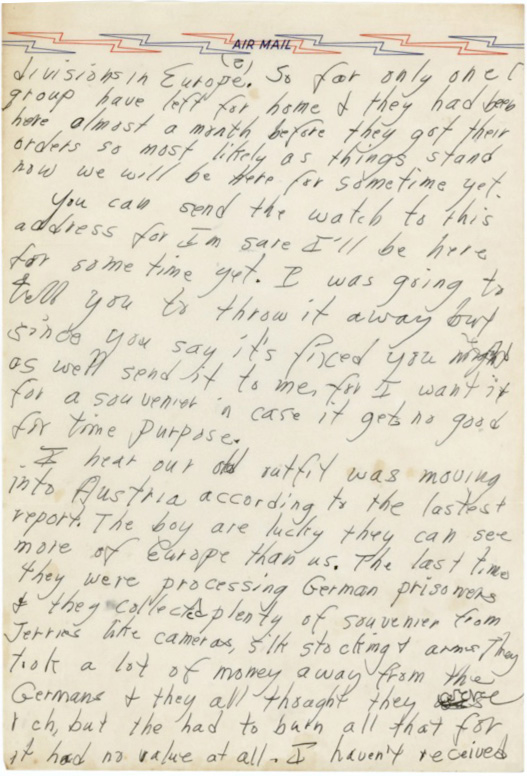 AIR MAIL
(2)
divisions in Europe. So far only one
group have left for home & they had been
here almost a month before they got their
orders so most likely as things stand
now we will be here for sometime yet.
You can send the watch to this
address for Im sure I'll be here
for some time yet. I was going to
tell you to throw it away but
since you say it's fixed you might
as well send it to me, for I want it
for a souvenier in case it gets no good
for time purpose.
I hear our old outfit was moving
into Austria according to the lastest
report. The boy are lucky they can see
more of Europe than us. The last time
they were processing German prisoners
& they collected plenty of souvenier from
Jerries like cameras, silk stocking & arms. They
took a lot of money away from the
Germans & they all thoaght they were
rich, but the had to burn all that for
it had no value at all. I haven't received